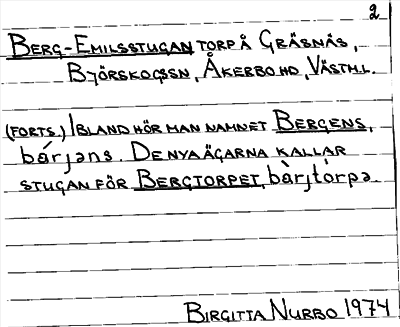 2
BERG-EMILSSTUGAN TORP Å GRÄSNÄS,
BJÖRSKOGSSN, ÅKERBO HD, VÄSTML.
(FORTS.) IBLAND HÖR MAN NAMNET BERGENS,
bárjəns. DE NYA ÄGARNA KALLAR
STUGAN FÖR BERGTORPET, bàrjtòrpə.
BIRGITTA NURBO 1974